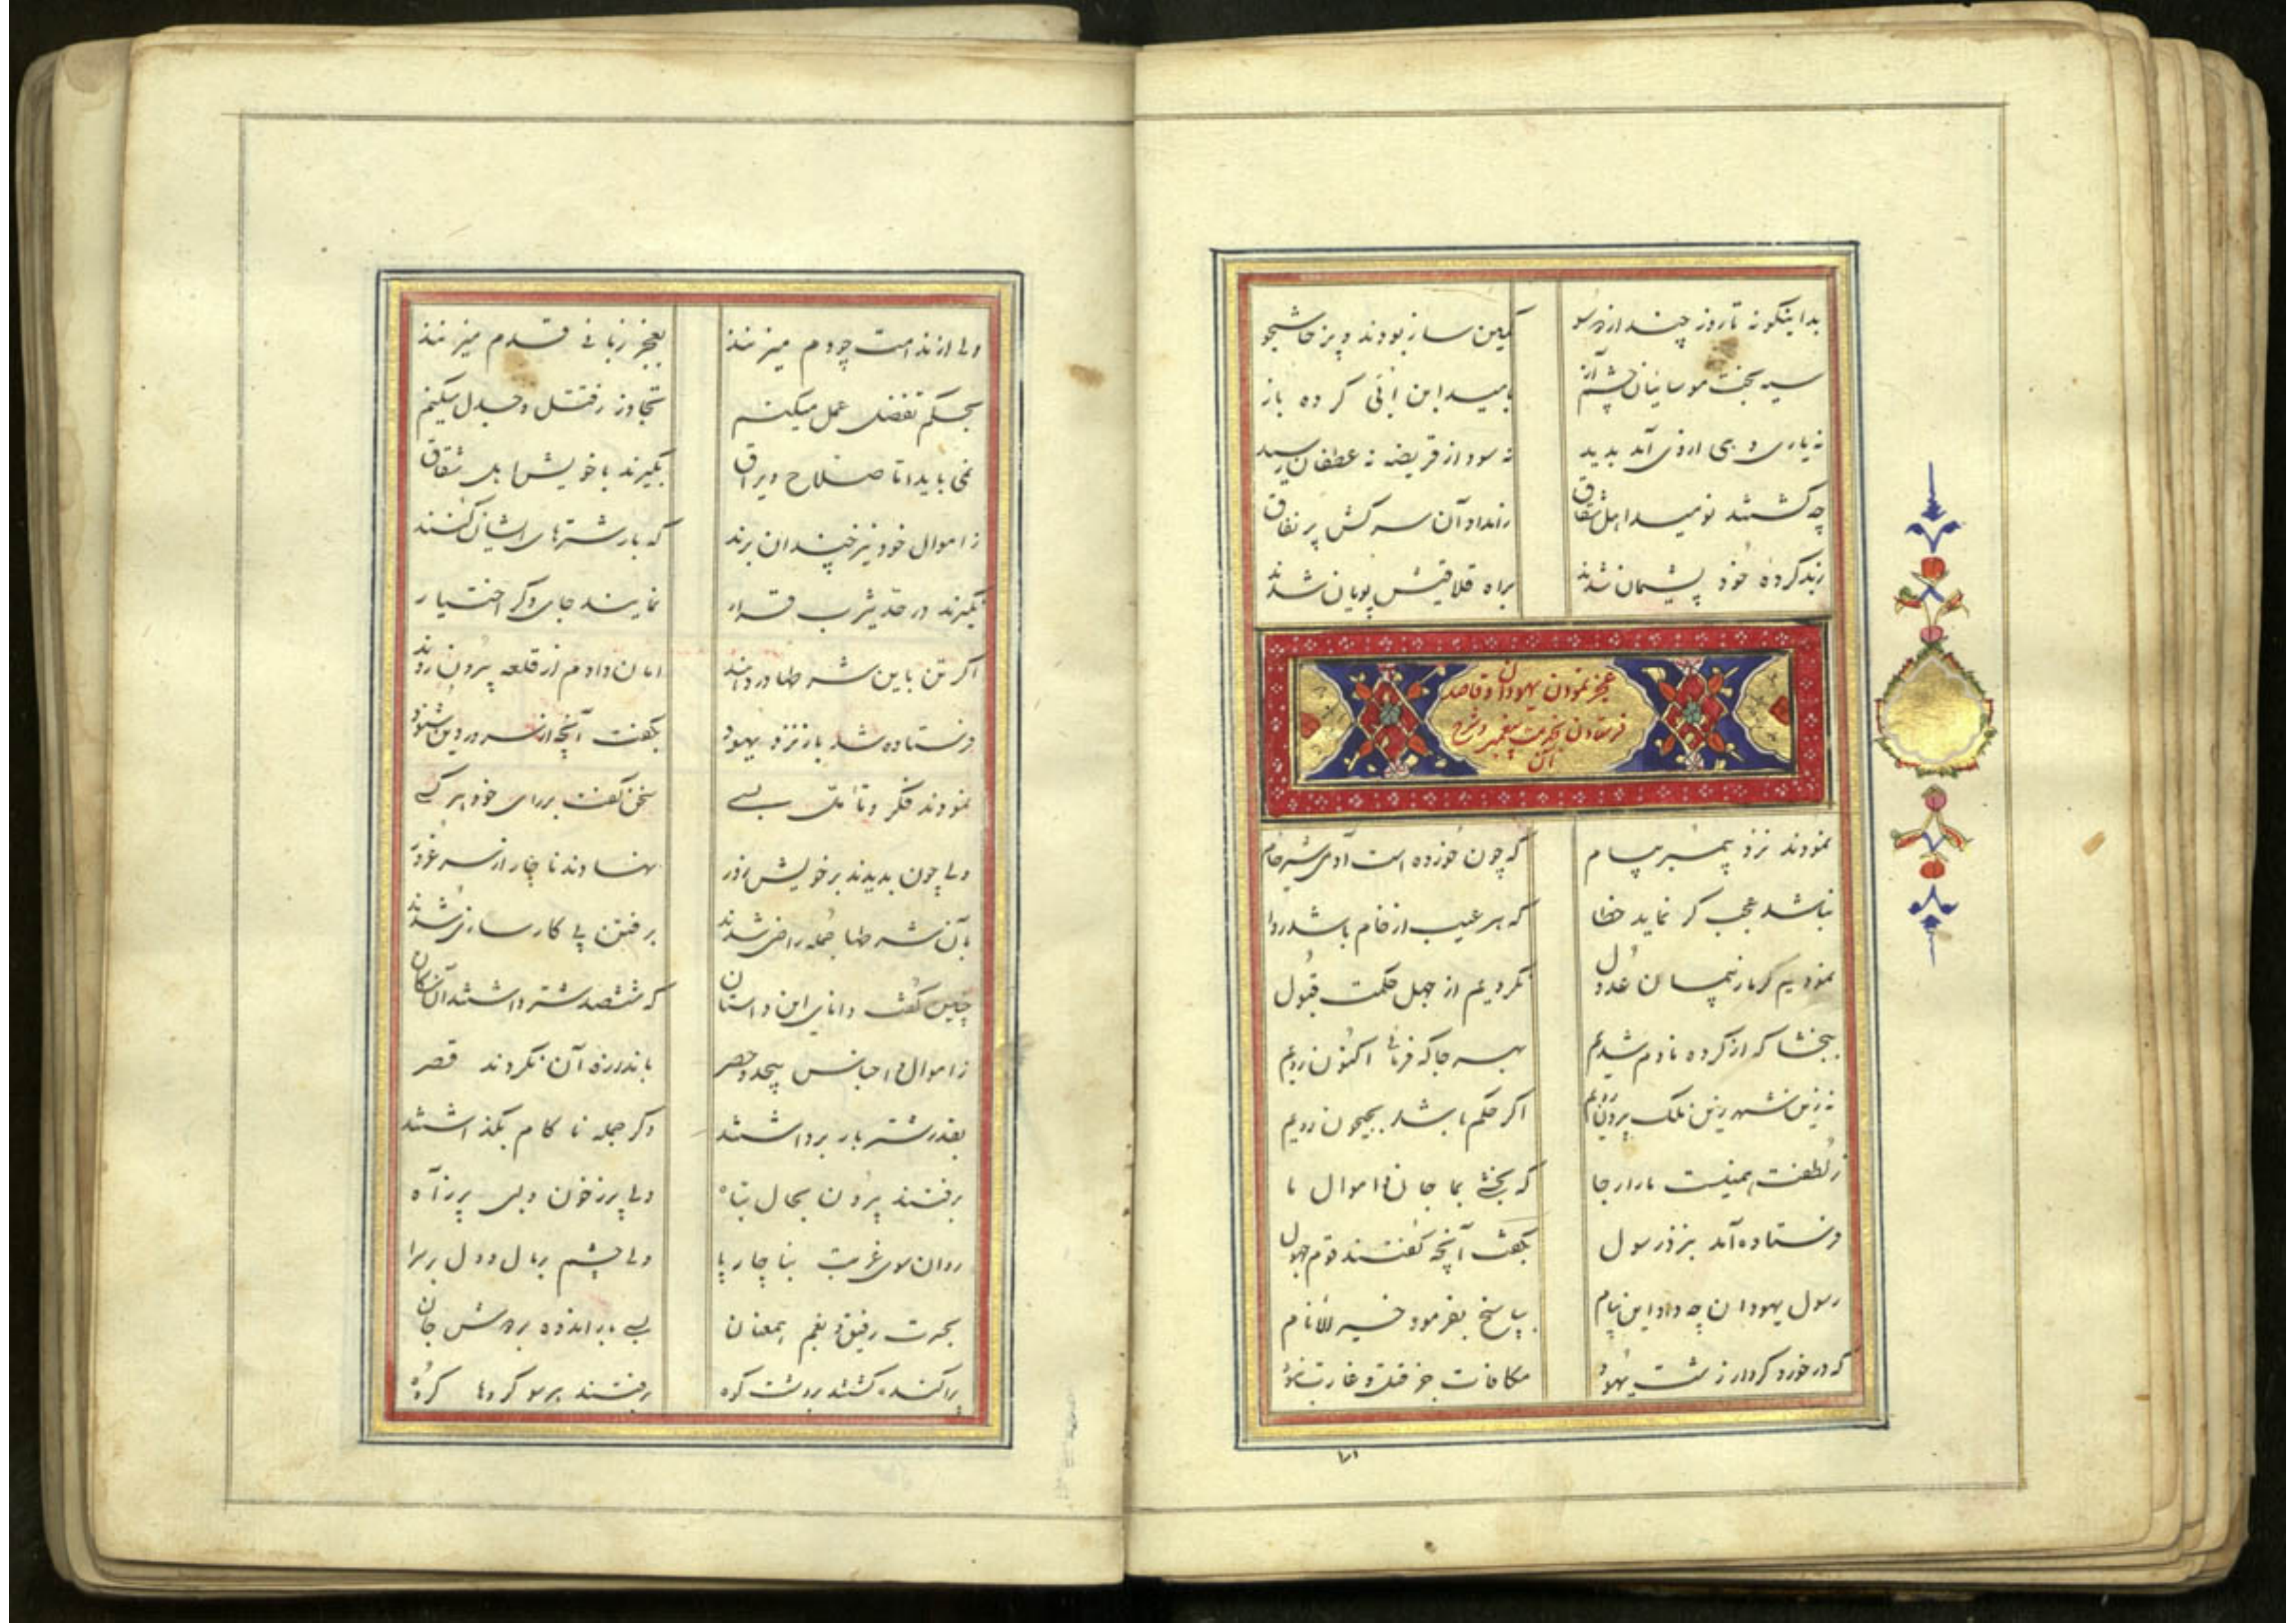 بداینکونه تا روز چند از دو سو کمین ساز بودند و پرخاشجو
سیه بخت موسائیان چشم آز بامید ابن ابی کرده باز
نه یاری و بی ازوی آمد بدید نه سود از قریضه نه عطفان رسید
چه کشتند نومید اهل شقاق ز امداد آن سرکش پر نفاق
ز بد کردهٔ خود پشیمان شدند براه قلافیش پویان شدند
عجز نمودن یهودان و قاصد
فرستادن بخدمت پیغمبر و شرح
آن
نمودند نزد پیمبر پیام که چون خورده است آدمی شیر خام
نباشد عجب کر نماید خطا که هر عیب از خام باشد روا
نمودیم کر ما ز پیمان عدول نکردیم از جهل حکمت قبول
ببخشا که از کرده نادم شدیم بهر جا که فرمائی اکنون رویم
نه زین شهر زین ملک بیرون رویم اکر حکم باشد بجیحون رویم
ز لطفت همینست ما را رجا که بخشی بما جان و اموال ما
فرستاده آمد بنزد رسول بکفت آنچه کفتند قوم جهول
رسول یهودان چه داد این پیام بپاسخ بفرمود خیر الانام
که در خورد کردار زشت یهود مکافات جز قتل و غارت نبود
ولی از ندامت چو دم میزنند بعجز زبانی قدم میزنند
بحکم تفضل عمل میکنم تجاوز ز قتل و جدل میکنم
نمی باید اما صلاح و یراق بگیرند با خویش اهل شقاق
ز اموال خود نیز چندان برند که بار شترهای ایشان کنند
نگیرند در حد یثرب قرار نمایند جای دکر اختیار
اکر تن باین شرطها در دهند امان دادم از قلعه بیرون روند
فرستاده شد باز نزد یهود بکفت آنچه از سرور دین شنود
نمودند فکر و تأمل بسی سخن کفت بر رای خود هر کسی
ولی چون بدیدند بر خویش زور نهادند ناچار از سر غرور
بآن شرطها جمله راضی شدند برفتن پی کارسازی شدند
چنین کفت دانای این داستان که ششصد شتر داشتند آن کسان
ز اموال و اجناس بیحد و حصر باندازه آن نکردند قصر
بقدر شتر بار برداشتند دکر جمله ناکام بکذاشتند
برفتند بیرون بحال تباه دلی پر ز خون و لبی پر ز آه
روان سوی غربت بناچار پا ولی چشم بر مال و دل بر سرا
بحسرت رفیق و بغم همعنان بسی بار اندوه بر دوش جان
پراکنده کشتند بر دشت و کوه برفتند هر سو کروها کروه